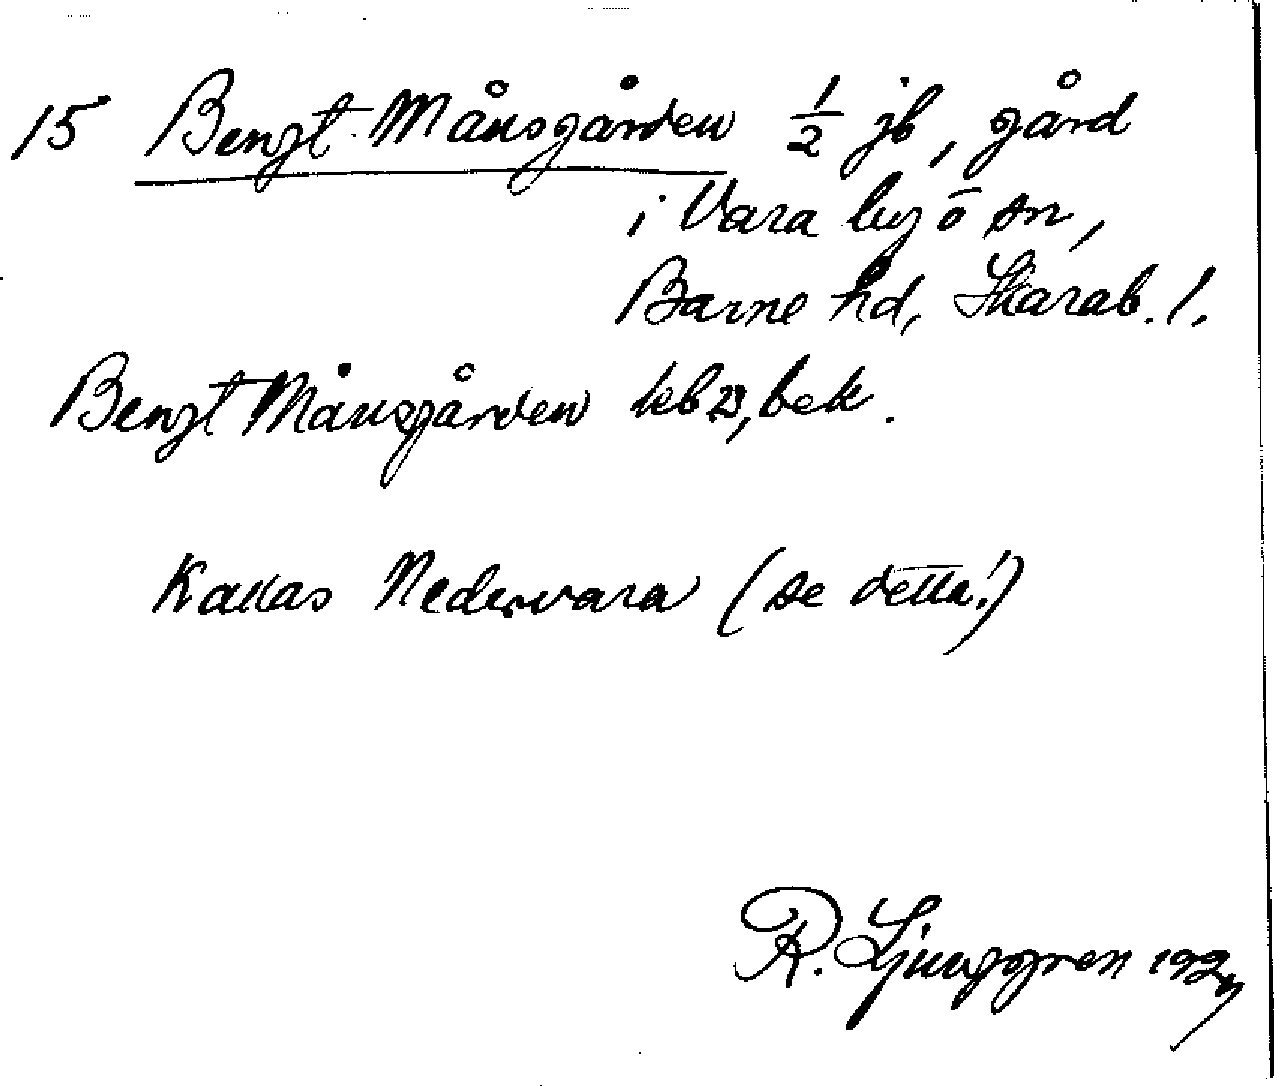 15 Bengt Månsgården 1/2 jb, gård
i Vara by o sn,
Barne hd, Skarab. l.
Bengt Månsgården kb 23, bek.
Kallas Nedervara (se detta!)
R. Ljunggren 1927